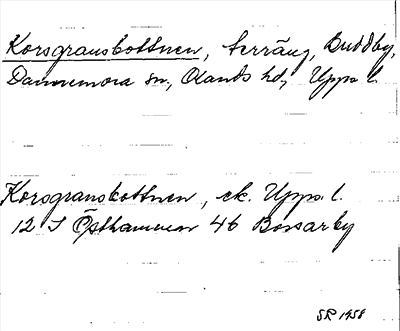 Korsgransbottnen, terräng, Buddby,
Dannemora sn, Olands hd, Upps. l.
Korsgransbottnen, ek. Upps. l.
12 I Östhammar 4b Borsarby
SR 1958